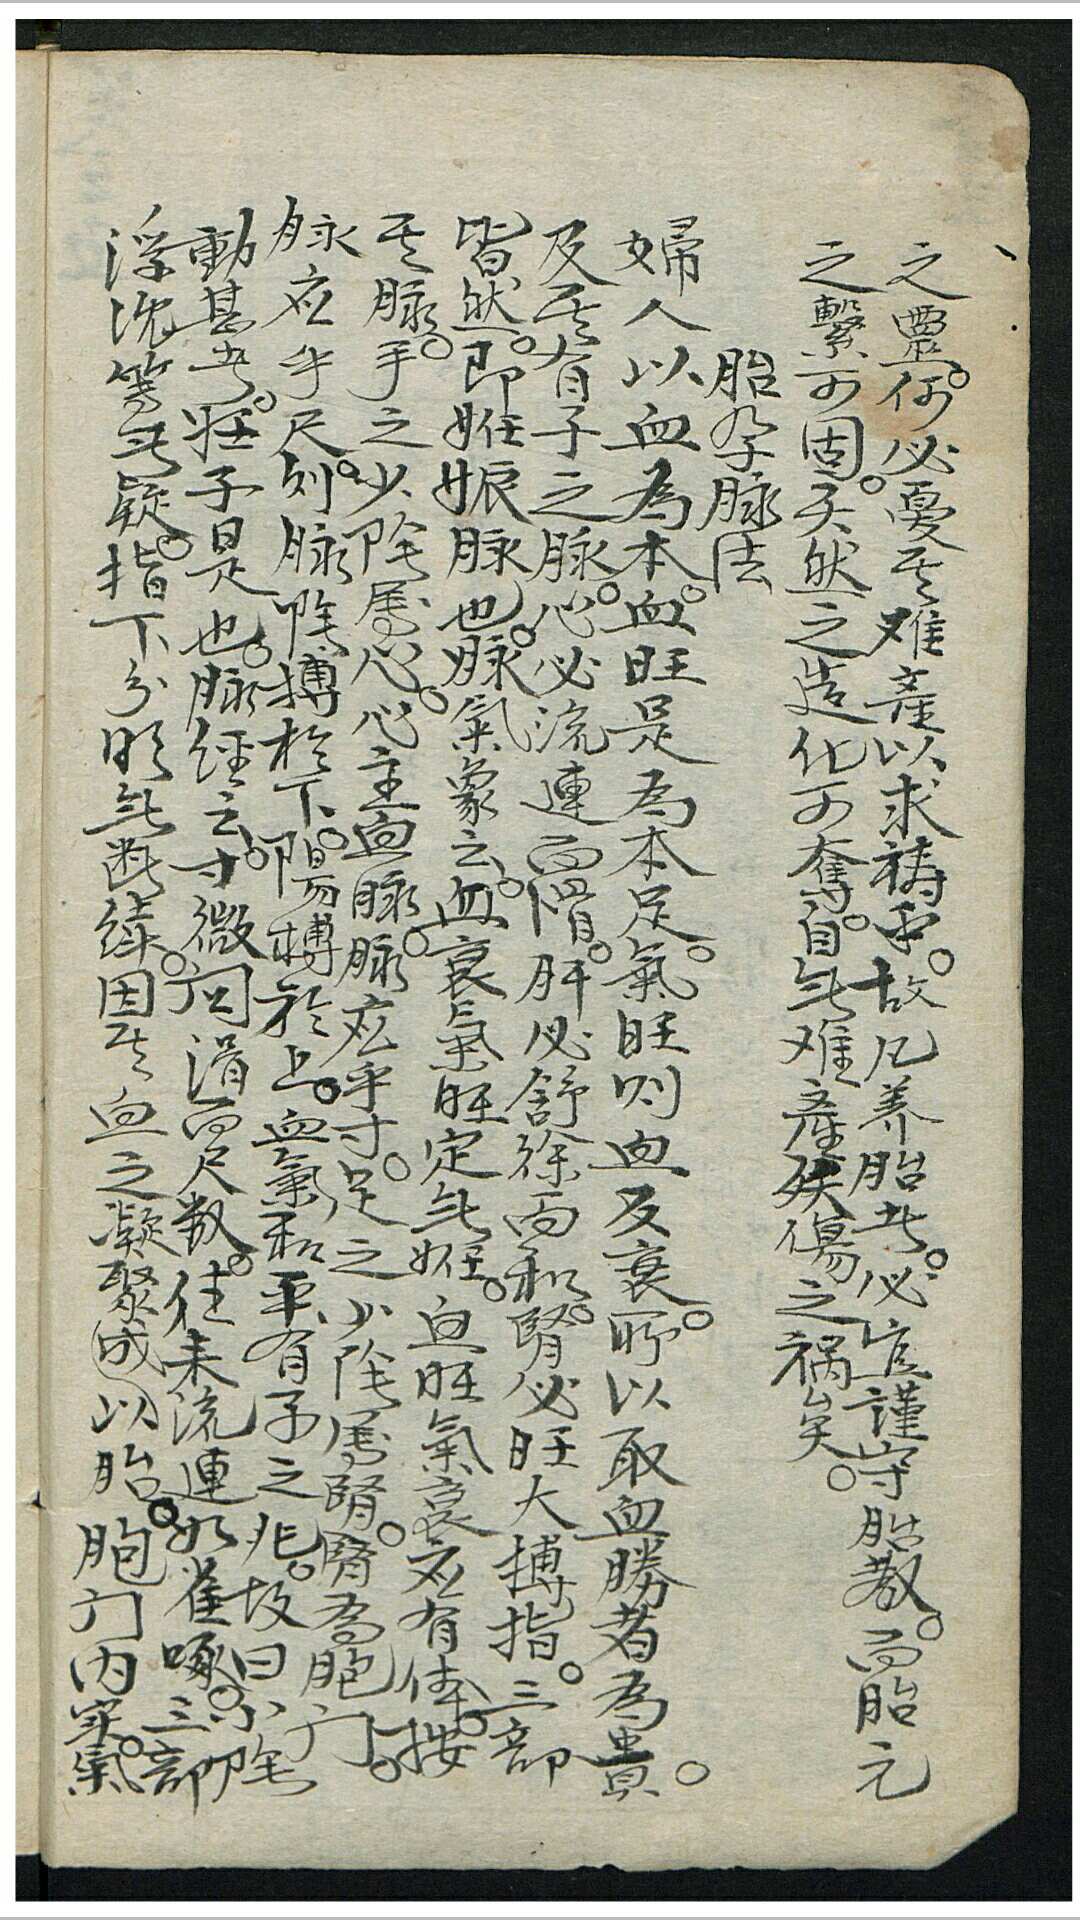 之靈。何必憂其难產以求祷乎。故凡养胎者。必宜謹守胎教。而胎元
之繫可固。天然之造化可奪。自無难產殀傷之祸矣。
胎孕脉法
婦人以血為本。血旺是為本足。氣旺則血反衰。所以取血勝者為貴。
及其有子之脉。心必流連而滑。肝必舒徐而和。腎必旺大搏指。三部
皆然。即妊娠脉也。脉氣象云。血衰氣旺定無妊。血旺氣衰应有体。按
其脉。手之少陰属心。心主血脉。脉应乎寸。足之少陰属腎。腎為胞门。
脉应乎尺。別脉陰搏於下。陽搏於上。血氣和平。有子之兆。故曰少陰
動甚者。妊子是也。脉經云。寸微関滑而尺数。往来流連如雀啄。三部
浮沈等無疑。指下分明無断续。因其血之凝聚成以胎。胞门内实。氣